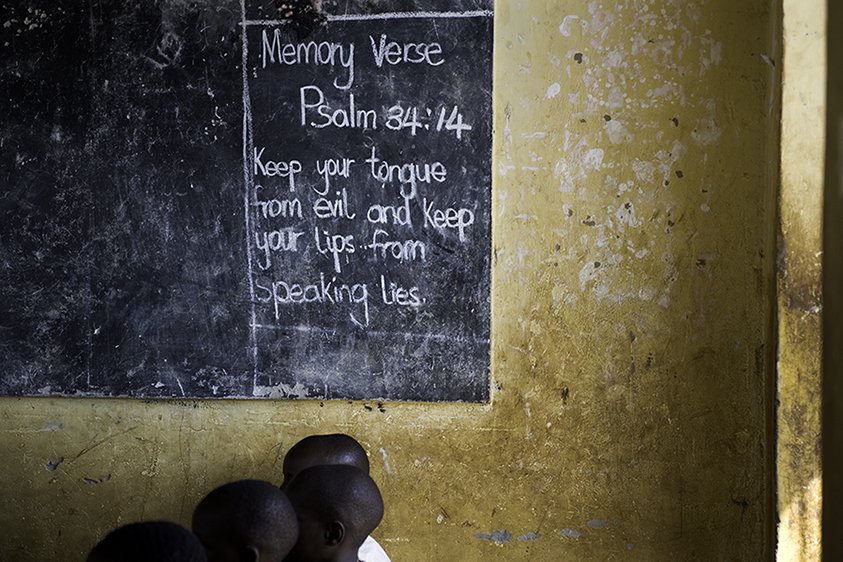 Memory Verse
Psalm 34:14
Keep your tongue
from evil and keep
your lips from
speaking lies.